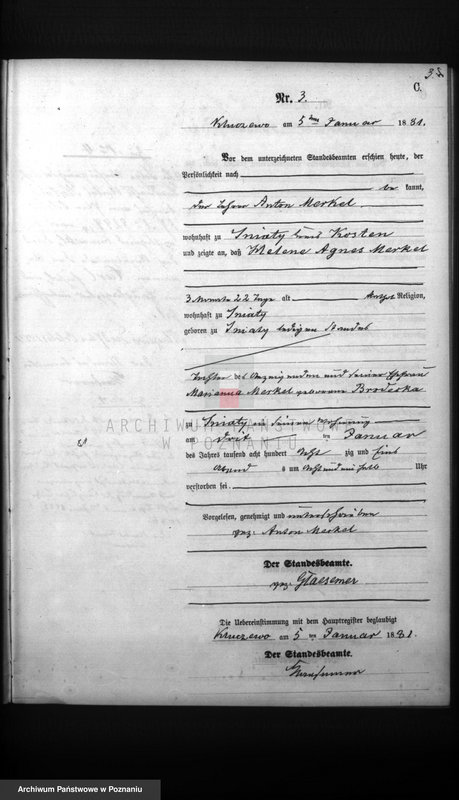 3
C.
Nr. 3.
Kluczewo am 5ten Januar 1881.
Vor dem unterzeichneten Standesbeamten erschien heute, der
Persönlichkeit nach
be kannt,
der Lehrer Anton Merkel
wohnhaft zu Sniaty Kreis Kosten
und zeigte an, daß Helene Agnes Merkel
3 Monate 22 Tage alt Religion,
wohnhaft zu Sniaty
geboren zu Sniaty ledigen Standes
Tochter des Anzeigenden und seiner Ehefrau
Marianna Merkel geborenen Broderka
zu Sniaty in seiner Wohnung
am Drei ten Januar
des Jahres tausend acht hundert Acht zig und Eins
Abends um Acht und ein halb Uhr
verstorben sei.
Vorgelesen, genehmigt und unterschrieben
gez: Anton Merkel
Der Standesbeamte.
gez: Glaesemer
Die Uebereinstimmung mit dem Hauptregister beglaubigt
Kluczewo am 5 ten Januar 1881.
Der Standesbeamte.
Glaesemer
ARCHIWUM PAŃSTWOWE
W POZNANIU
Archiwum Państwowe w Poznaniu